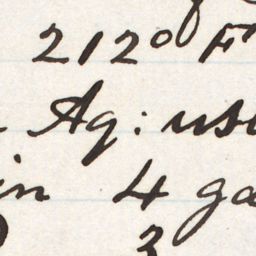 212° F
Aq: us
in 4 ga
3